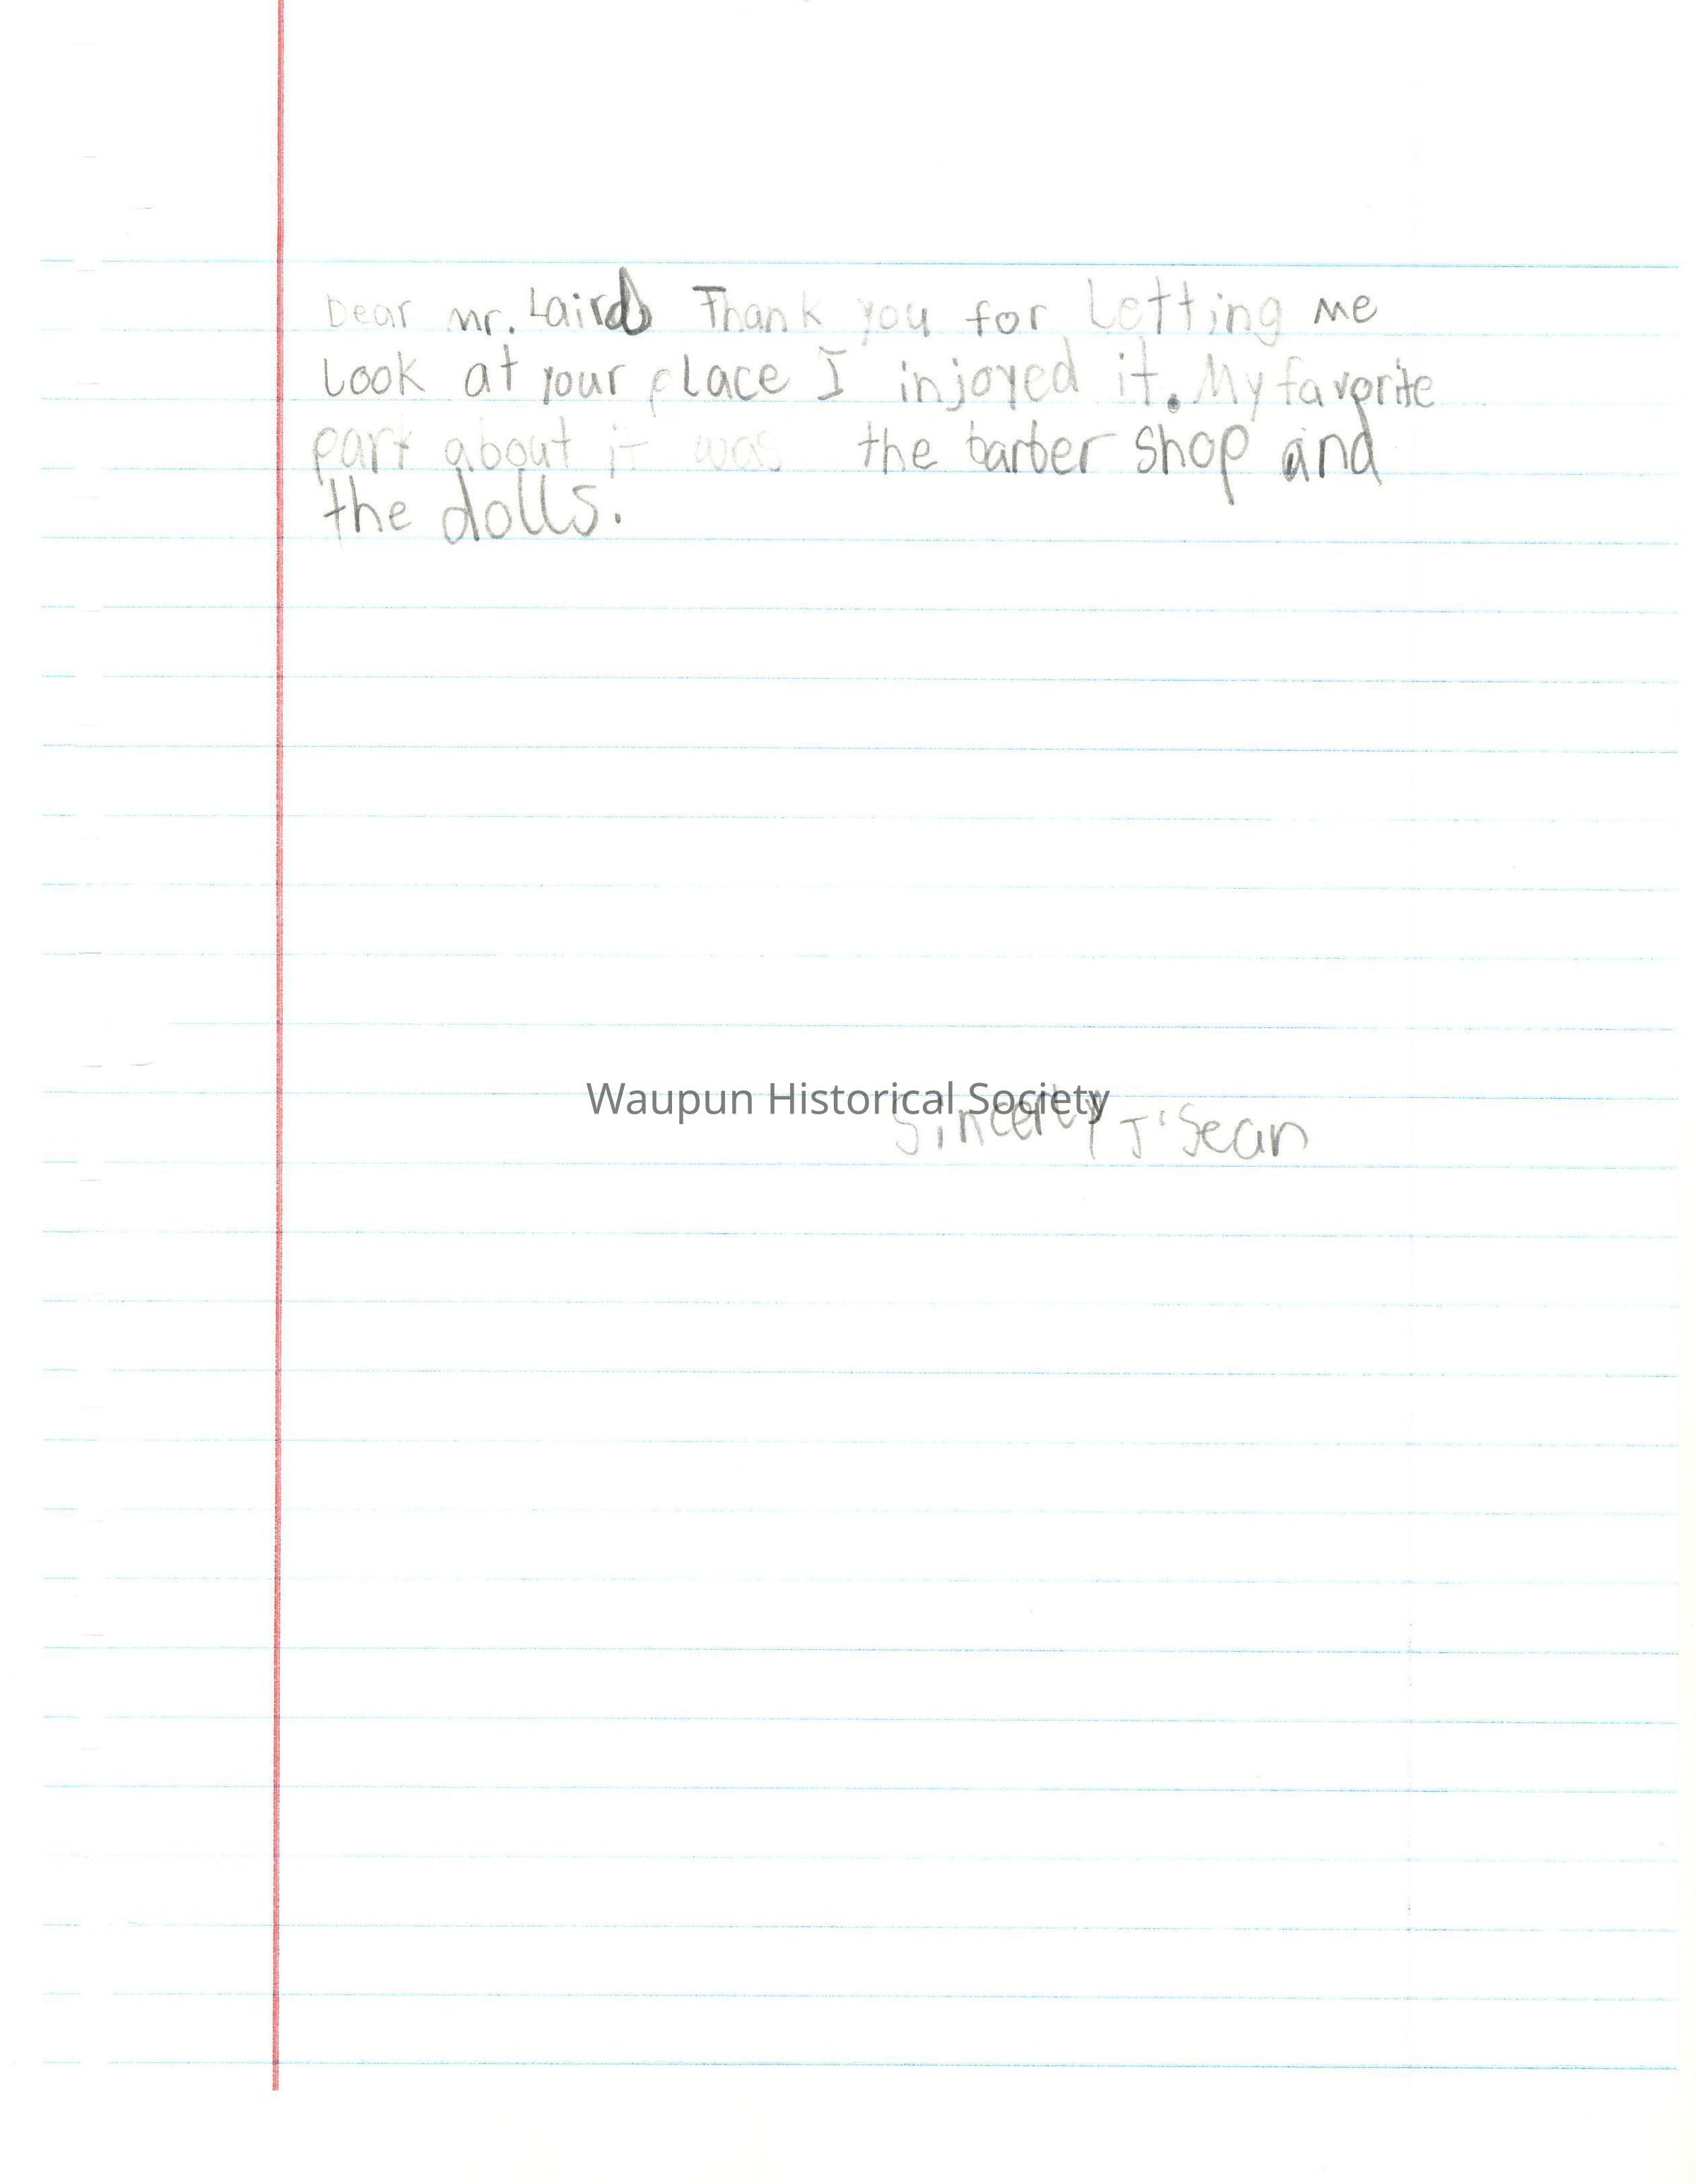 Dear mr. Laird Thank you for Letting me
Look at your place I injoyed it. My favorite
part about it was the barber shop and
the dolls.
Waupun Historical Society
Sincerly J'Sean